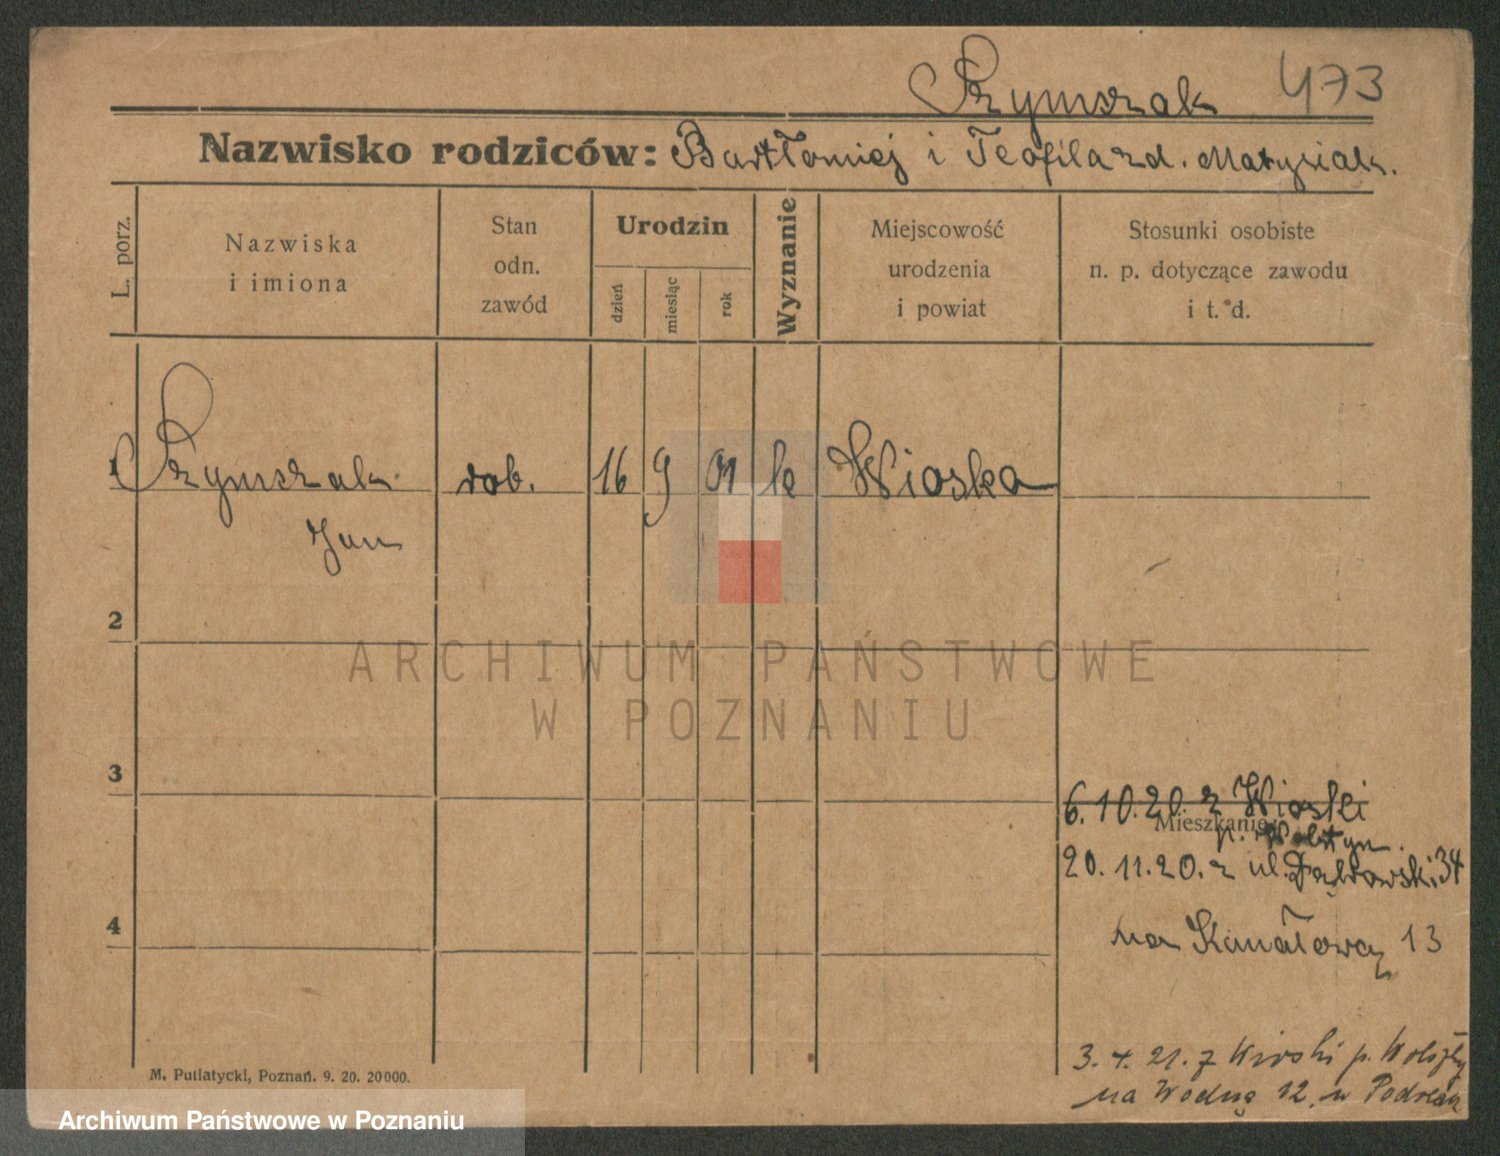 Szymszak 473
Nazwisko rodziców: Bartłomiej i Teofila zd. Matysiak.
L. porz.
Nazwiska
i imiona
Stan
odn.
zawód
Urodzin
dzień
miesiąc
rok
Wyznanie
Miejscowość
urodzenia
i powiat
Stosunki osobiste
n. p. dotyczące zawodu
i t. d.
1 Szymszak rob. 16 9 01 k Wioska
Jan
2
ARCHIWUM PAŃSTWOWE
W POZNANIU
3
6.10.20. z Wioski
Mieszkanie:
p. Wolsztyn.
20.11.20. z ul. Dąbrowski. 34
4
na Kanałową 13
3. 4. 21. z Wioski p.
na Wodną 12.
M. Putiatycki, Poznań. 9. 20. 20000.
Archiwum Państwowe w Poznaniu